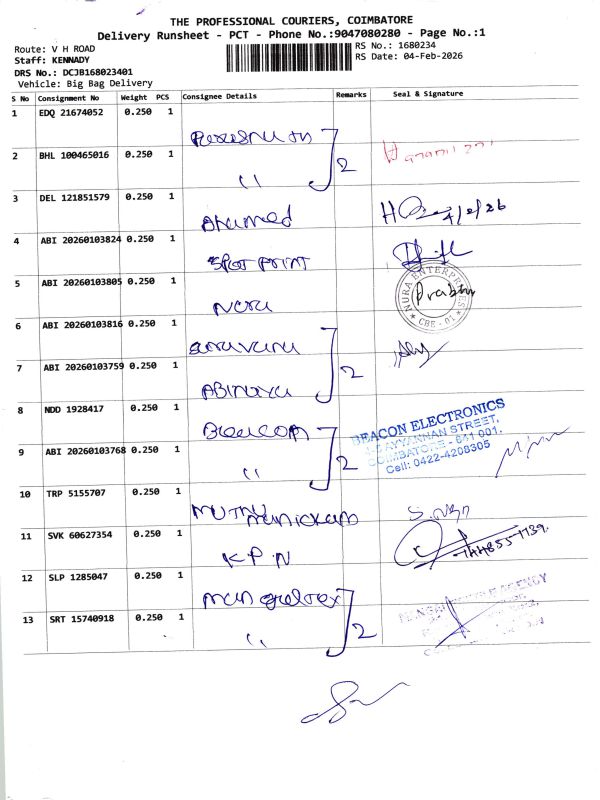 THE PROFESSIONAL COURIERS, COIMBATORE
Delivery Runsheet - PCT - Phone No.:9047080280 - Page No.:1
Route: V H ROAD
RS No.: 1680234
Staff: KENNADY
RS Date: 04-Feb-2026
DRS No.: DCJB168023401
Vehicle: Big Bag Delivery
S No Consignment No Weight PCS Consignee Details Remarks Seal & Signature
1 EDQ 21674052 0.250 1
2 BHL 100465016 0.250 1 " 2
3 DEL 121851579 0.250 1 Ahamed 4/2/26
4 ABI 20260103824 0.250 1 SPOT PRINT
5 ABI 20260103805 0.250 1 Nura NURA ENTERPRISES * CBE - 01 * Prabhu
6 ABI 20260103816 0.250 1
7 ABI 20260103759 0.250 1 2
8 NDD 1928417 0.250 1 Beacon BEACON ELECTRONICS
9 ABI 20260103768 0.250 1 " 2 AYYANNAN STREET,
COIMBATORE - 641 001.
Cell: 0422-4208305
10 TRP 5155707 0.250 1 MUTHU manickam
11 SVK 60627354 0.250 1 K P N
12 SLP 1285047 0.250 1 AGENCY
13 SRT 15740918 0.250 1 " 2